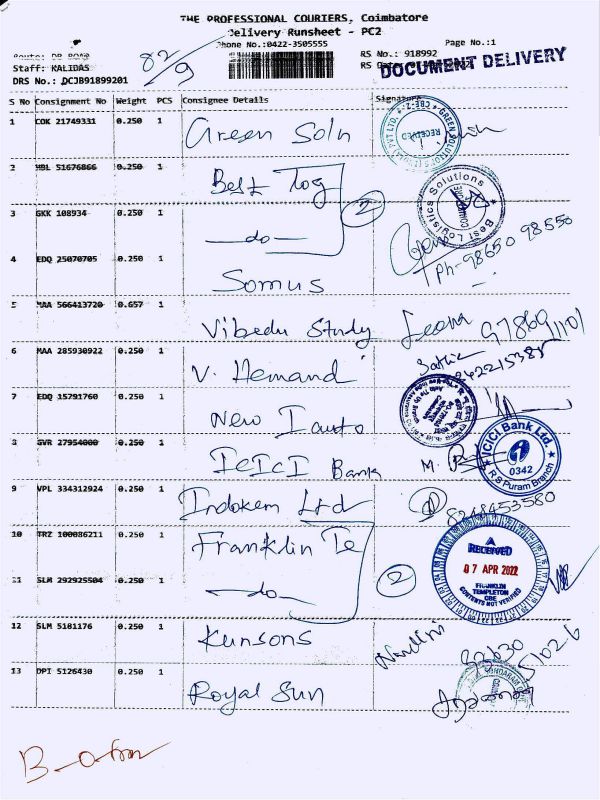 THE PROFESSIONAL COURIERS, Coimbatore
Delivery Runsheet - PC2
Phone No.:0422-3505555 Page No.:1
82/9
RS No.: 918992
Staff: KALIDAS
DOCUMENT DELIVERY
DRS No.: DCJB91899201
S No Consignment No Weight PCS Consignee Details Signature
1 COK 21749331 0.250 1 Green Soln
RECEIVED
2 HBL 51676866 0.250 1 Best Log
Best Logistics Solutions
2
3 GKK 108934 0.250 1 —do—
Ph-98650 98550
4 EDQ 25070705 0.250 1 Somus
5 MAA 566413720 0.657 1 Vibedu Study Leona
6 MAA 285930922 0.250 1 V. Hemand
7 EDQ 15791760 0.250 1 New I auto
8 GVR 27954000 0.250 1 IcIcI Bank
ICICI Bank Ltd.
0342
R S Puram Branch
9 VPL 334312924 0.250 1 Indokem Ltd
8248453580
10 TRZ 100086211 0.250 1 Franklin Te
RECEIVED
07 APR 2022
FRANKLIN
TEMPLETON
CBE
CONTENTS NOT VERIFIED
11 SLM 292925504 0.250 1 —do—
2
12 SLM 5181176 0.250 1 Kunsons
Nandhini
13 DPI 5126430 0.250 1 Royal Sun